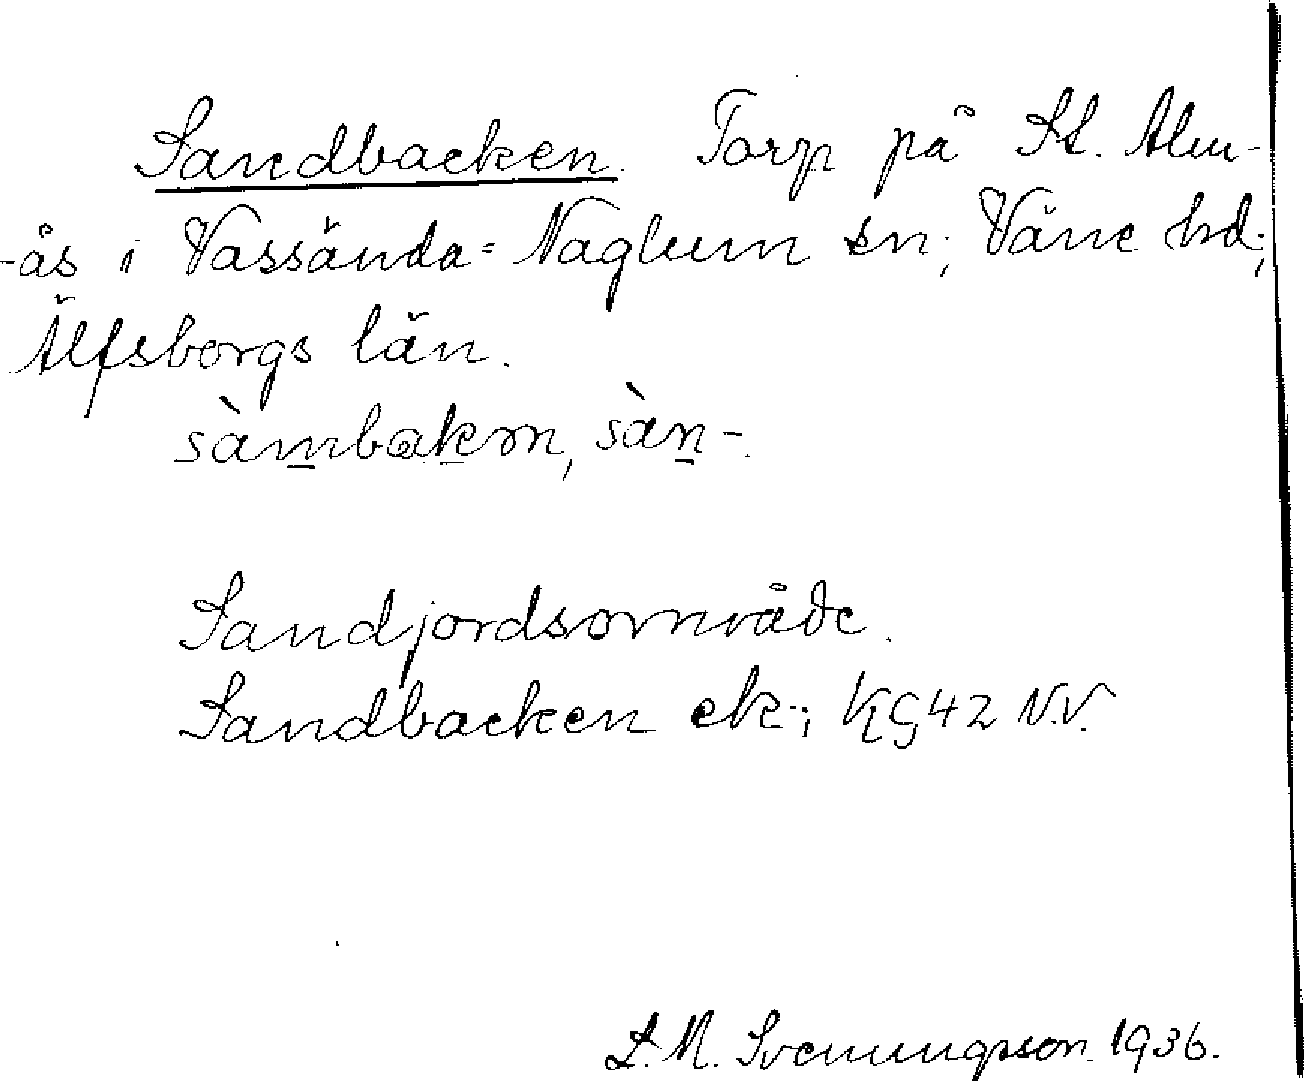 Sandbacken. Torp på St. Alm-
-ås i Vassända-Naglum sn; Väne hd;
Älfsborgs län.
sàmbakɷn, sàn-.
Sandjordsområde.
Sandbacken ek.; KG42 N.V.
L.M. Svenungsson 1936.